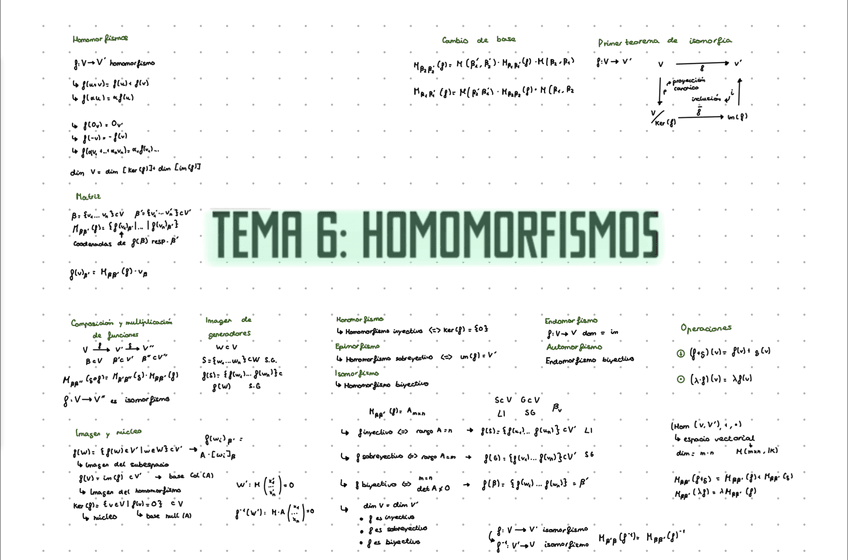 Homomorfismos
f: V → V' homomorfismo
↳ f(u+v) = f(u) + f(v)
↳ f(αu) = αf(u)
↳ f(0ᵥ) = 0ᵥ'
↳ f(-v) = -f(v)
↳ f(α₁v₁ + ... + αₙvₙ) = α₁f(v₁)...
dim V = dim [Ker(f)] + dim [im(f)]
Matriz
β = {v₁ ... vₙ} ⊂ V β' = {v₁' ... vₙ'} ⊂ V'
Mββ'(f) = {f(v₁)β' | ... | f(vₙ)β'}
coordenadas de f(β) resp. β'
f(v)β' = Mββ'(f) · vβ
Cambio de base
Mβ₂β₂'(f) = M(β₁', β₂') · Mβ₁β₁'(f) · M(β₂, β₁)
Mβ₁β₁'(f) = M(β₂', β₁') · Mβ₂β₂'(f) · M(β₁, β₂)
Primer teorema de isomorfía
f: V → V'
V → V'
f
proyección
canónica
inclusión i
V/Ker(f) → im(f)
TEMA 6: HOMOMORFISMOS
Composición y multiplicación
de funciones
V → V' → V''
β ⊂ V β' ⊂ V' β'' ⊂ V''
Mββ''(g∘f) = Mβ'β''(g) · Mββ'(f)
f: V → V'' es isomorfismo
Imagen de
generadores
W ⊂ V
S = {w₁ ... wₙ} ⊂ W S.G.
f(S) = {f(w₁) ... f(wₙ)} ⊂
f(W) S.G
Monomorfismo
↳ Homomorfismo inyectivo <=> Ker(f) = {0}
Epimorfismo
↳ Homomorfismo sobreyectivo <=> im(f) = V'
Isomorfismo
↳ Homomorfismo biyectivo
Endomorfismo
f: V → V dom = im
Automorfismo
Endomorfismo biyectivo
Operaciones
① (f+g)(v) = f(v) + g(v)
⊙ (λ·f)(v) = λf(v)
Imagen y núcleo
f(W) = {f(w) ∈ V' | w ∈ W} ⊂ V' → f(wᵢ)β' = A·[wᵢ]β
↳ Imagen del subespacio
f(V) = im(f) ⊂ V' → base Col(A)
↳ Imagen del homomorfismo
Ker(f) = {v ∈ V | f(v) = 0} ⊂ V
↳ núcleo ↳ base null(A)
W': M (x₁' ... xₙ') = 0
f⁻¹(W'): M·A (x₁ ... xₙ) = 0
Mββ'(f) = Aₘₓₙ
S ⊂ V G ⊂ V βᵥ
LI SG
↳ f inyectivo <=> rango A = n → f(S) = {f(u₁) ... f(uₙ)} ⊂ V' LI
↳ f sobreyectivo <=> rango A = m → f(G) = {f(u₁) ... f(uₙ)} ⊂ V' SG
↳ f biyectivo <=> m=n det A ≠ 0 → f(β) = {f(u₁) ... f(uₙ)} = β'
↳ dim V = dim V'
• f es inyectivo
• f es sobreyectivo
• f es biyectivo
f: V → V' isomorfismo
f⁻¹: V' → V isomorfismo Mβ'β(f⁻¹) = Mββ'(f)⁻¹
(Hom (V, V'), +, ·)
↳ espacio vectorial
dim = m·n M(mxn, IK)
Mββ'(f+g) = Mββ'(f) + Mββ'(g)
Mββ'(λf) = λMββ'(f)